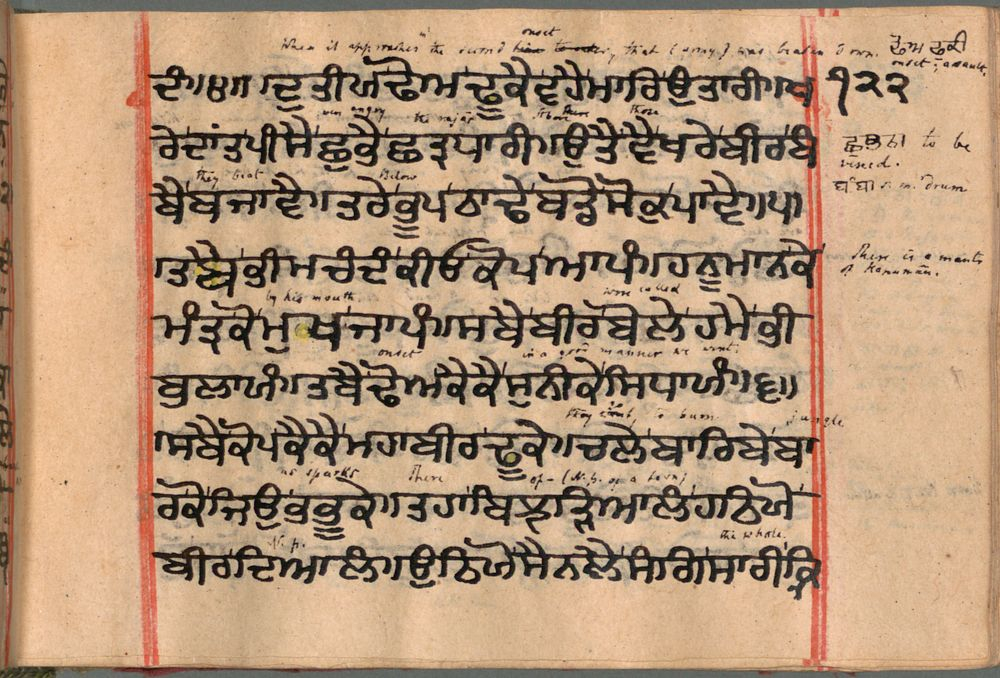 When it approaches the second onset, that (army) was beaten down. ਢੋਅ ਢੁਕੀ
onset; assault.
ਦੰ।੪॥ ।ਦੁਤੀਯ ਢੋਅ ਢੂਕੈ ਵਹੈ ਮਾਰਿ ਉਤਾਰੀ। ਖ ੧੨੨
very angry the rajas there those
ਰੇ ਦਾਂਤ ਪੀਸੈ ਛੁਭੈ ਛਤ੍ਰਧਾਰੀ।ਉਤੈ ਵੈ ਖਰੇ ਬੀਰ ਬੰ ਛੁਭਨਾ to be
vexed.
they beat Below
ਬੈ ਬਜਾਵੈ। ਤਰੇ ਭੂਪ ਠਾਢੇ ਬਡੋ ਸੋਕੁ ਪਾਵੈ।੫। ਬੰਬਾ s.m. drum
।ਤਬੈ ਭੀਮ ਚੰਦੰ ਕੀਓ ਕੋਪ ਆਪੰ।ਹਨੂਮਾਨ ਕੇ There is a mantr
of Hanuman.
by his mouth were called
ਮੰਤ੍ਰ ਕੋ ਮੁਖ ਜਾਪੰ।ਸਬੈ ਬੀਰ ਬੋਲੇ ਹਮੈ ਭੀ
onset in a good manner we went.
ਬੁਲਾਯੰ।ਤਬੈ ਢੋਅੰ ਕੈ ਕੈ ਸੁ ਨੀਕੇ ਸਿਧਾਯੰ।੬॥
they to burn jungle
।ਸਬੈ ਕੋਪ ਕੈ ਕੈ ਮਹਾ ਬੀਰ ਢੂਕੇ।ਚਲੇ ਬਾਰਿਬੇ ਬਾ
as sparks There of - (N.p. of a town)
ਰ ਕੋ ਜਿਉ ਭਭੂਕੇ।ਤਹਾ ਬਿਝੜਿਆਲੰ ਹਠਿਯੋ
N.p. the whole.
ਬੀਰ ਦਿਆਲੰ।ਉਠਿਯੋ ਸੈਨ ਲੈ ਸੰਗਿ ਸਾਰੀ ਕ੍ਰਿ